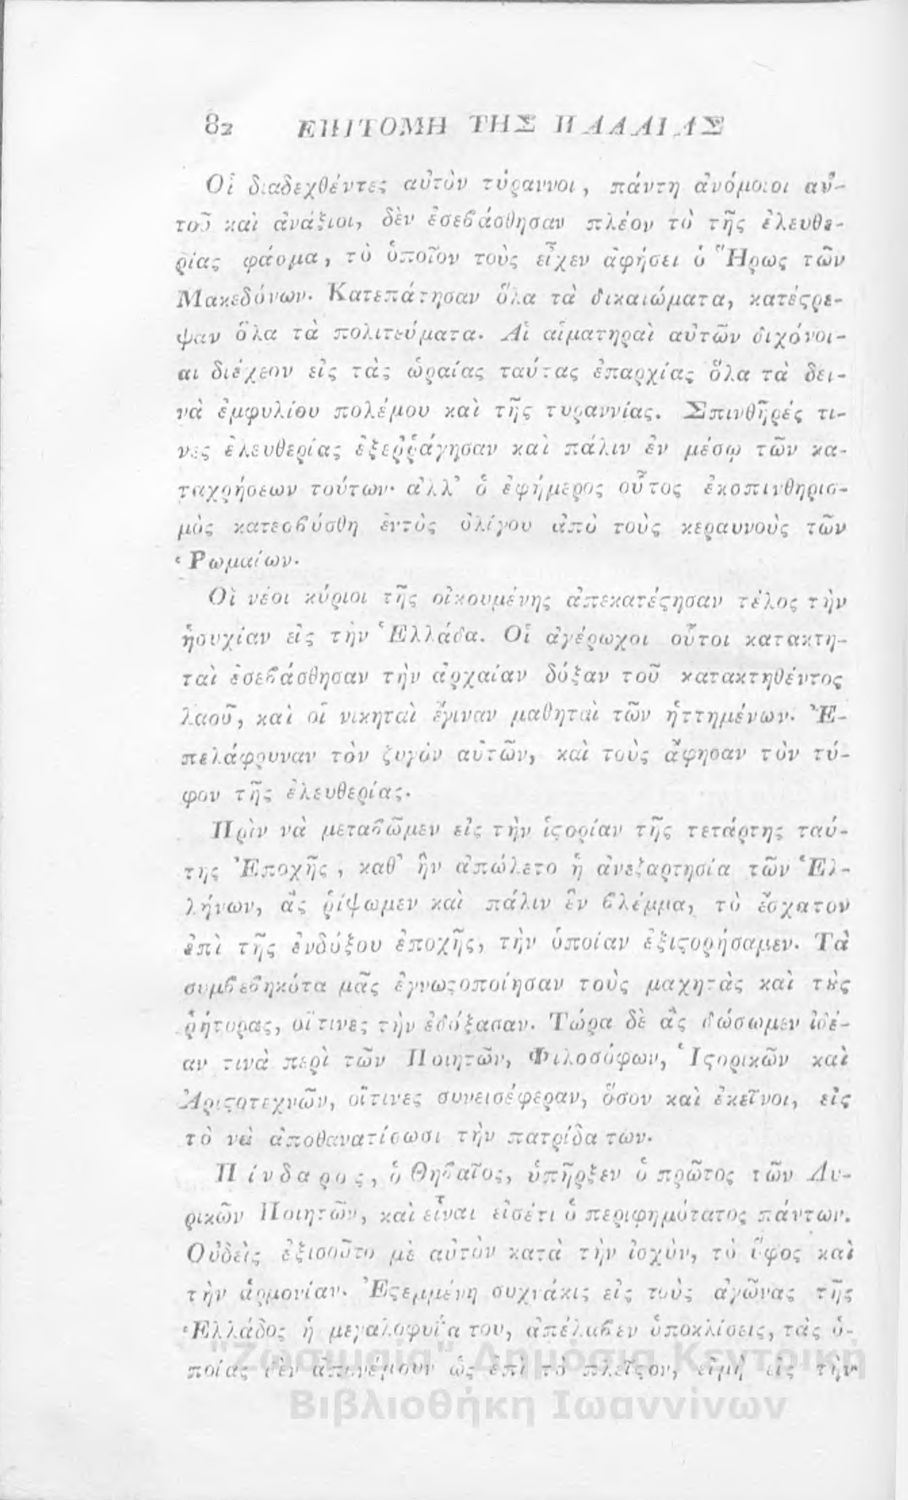 82 ΕΠΙΤΟΜΗ ΤΗΣ ΠΑΛΑΙΑΣ
Οἱ διαδεχθέντες αὐτὸν τύραννοι, πάντη ἀνόμοιοι αὐ-
τοῦ καὶ ἀνάξιοι, δὲν ἐσεβάσθησαν πλέον τὸ τῆς ἐλευθε-
ρίας φάσμα, τὸ ὁποῖον τοὺς εἶχεν ἀφήσει ὁ Ἥρως τῶν
Μακεδόνων. Κατεπάτησαν ὅλα τὰ δικαιώματα, κατέςρε-
ψαν ὅλα τὰ πολιτεύματα. Αἱ αἱματηραὶ αὐτῶν διχόνοι-
αι διέχεον εἰς τὰς ὡραίας ταύτας ἐπαρχίας ὅλα τὰ δει-
νὰ ἐμφυλίου πολέμου καὶ τῆς τυραννίας. Σπινθῆρές τι-
νες ἐλευθερίας ἐξεῤῥάγησαν καὶ πάλιν ἐν μέσῳ τῶν κα-
ταχρήσεων τούτων· ἀλλ' ὁ ἐφήμερος οὗτος ἐκσπινθηρισ-
μὸς κατεσβύσθη ἐντὸς ὀλίγου ἀπὸ τοὺς κεραυνοὺς τῶν
Ῥωμαίων.
Οἱ νέοι κύριοι τῆς οἰκουμένης ἀπεκατέςησαν τέλος τὴν
ἡσυχίαν εἰς τὴν Ἑλλάδα. Οἱ ἀγέρωχοι οὗτοι κατακτη-
ταὶ ἐσεβάσθησαν τὴν ἀρχαίαν δόξαν τοῦ κατακτηθέντος
λαοῦ, καὶ οἱ νικηταὶ ἔγιναν μαθηταὶ τῶν ἡττημένων. Ἐ-
πελάφρυναν τὸν ζυγὸν αὐτῶν, καὶ τοὺς ἄφησαν τὸν τύ-
φον τῆς ἐλευθερίας.
Πρὶν νὰ μεταβῶμεν εἰς τὴν ἱςορίαν τῆς τετάρτης ταύ-
της Ἐποχῆς, καθ' ἣν ἀπώλετο ἡ ἀνεξαρτησία τῶν Ἑλ-
λήνων, ἂς ῥίψωμεν καὶ πάλιν ἓν βλέμμα, τὸ ἔσχατον
ἐπὶ τῆς ἐνδόξου ἐποχῆς, τὴν ὁποίαν ἐξιςορήσαμεν. Τὰ
συμβεβηκότα μᾶς ἐγνωςοποίησαν τοὺς μαχητὰς καὶ τοὺς
ῥήτορας, οἵτινες τὴν ἐδόξασαν. Τώρα δὲ ἂς δώσωμεν ἰδέ-
αν τινὰ περὶ τῶν Ποιητῶν, Φιλοσόφων, Ἱςορικῶν καὶ
Ἀριςοτεχνῶν, οἵτινες συνεισέφεραν, ὅσον καὶ ἐκεῖνοι, εἰς
τὸ νὰ ἀποθανατίσωσι τὴν πατρίδα των.
Πίνδαρος, ὁ Θηβαῖος, ὑπῆρξεν ὁ πρῶτος τῶν Λυ-
ρικῶν Ποιητῶν, καὶ εἶναι εἰσέτι ὁ περιφημότατος πάντων.
Οὐδεὶς ἐξισοῦτο μὲ αὐτὸν κατὰ τὴν ἰσχὺν, τὸ ὕφος καὶ
τὴν ἁρμονίαν. Ἐςεμμένη συχνάκις εἰς τοὺς ἀγῶνας τῆς
Ἑλλάδος ἡ μεγαλοφυΐα του, ἀπέλαβεν ὑποκλίσεις, τὰς ὁ-
ποίας δὲν ἀπονέμουν ὡς ἐπὶ τὸ πλεῖςον, εἰμὴ εἰς τὴν
"Ζωσιμαία" Δημόσια Κεντρική
Βιβλιοθήκη Ιωαννίνων